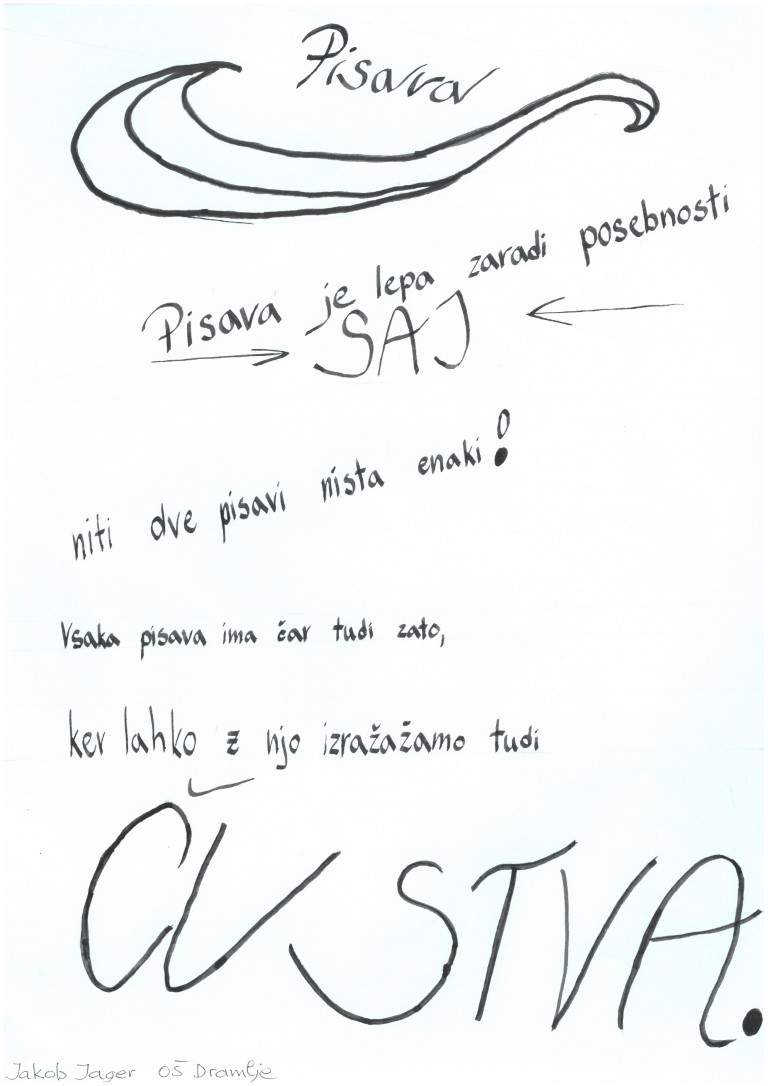 Pisava
Pisava je lepa zaradi posebnosti
SAJ
niti dve pisavi nista enaki!
Vsaka pisava ima čar tudi zato,
ker lahko z njo izražažamo tudi
ČUSTVA.
Jakob Jager OŠ Dramlje